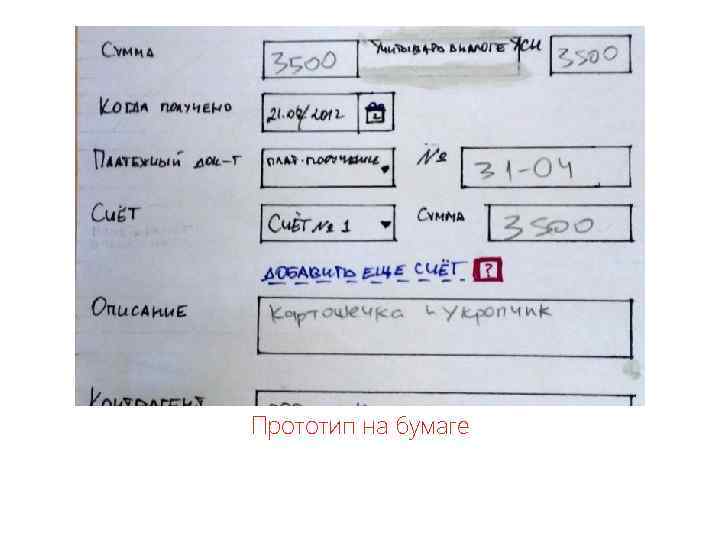 Сумма 3500 Учитывать в налоге УСН 3500
Когда получено 21.09/2012
Платежный док-т плат. поручение № 31-04
Счёт Счёт № 1 Сумма 3500
Добавить еще счёт ?
Описание Картошечка и укропчик
Контрагент
Прототип на бумаге